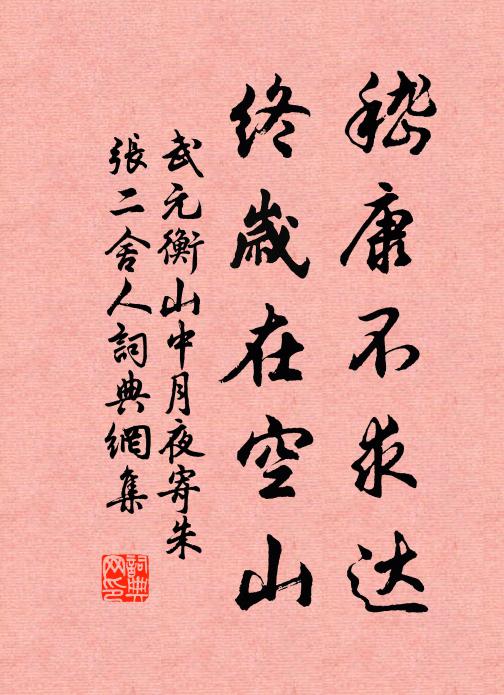 嵇康不求达
終歲在空山
武元衡山中月夜寄朱
張二舍人詞典網集
詞典
网印